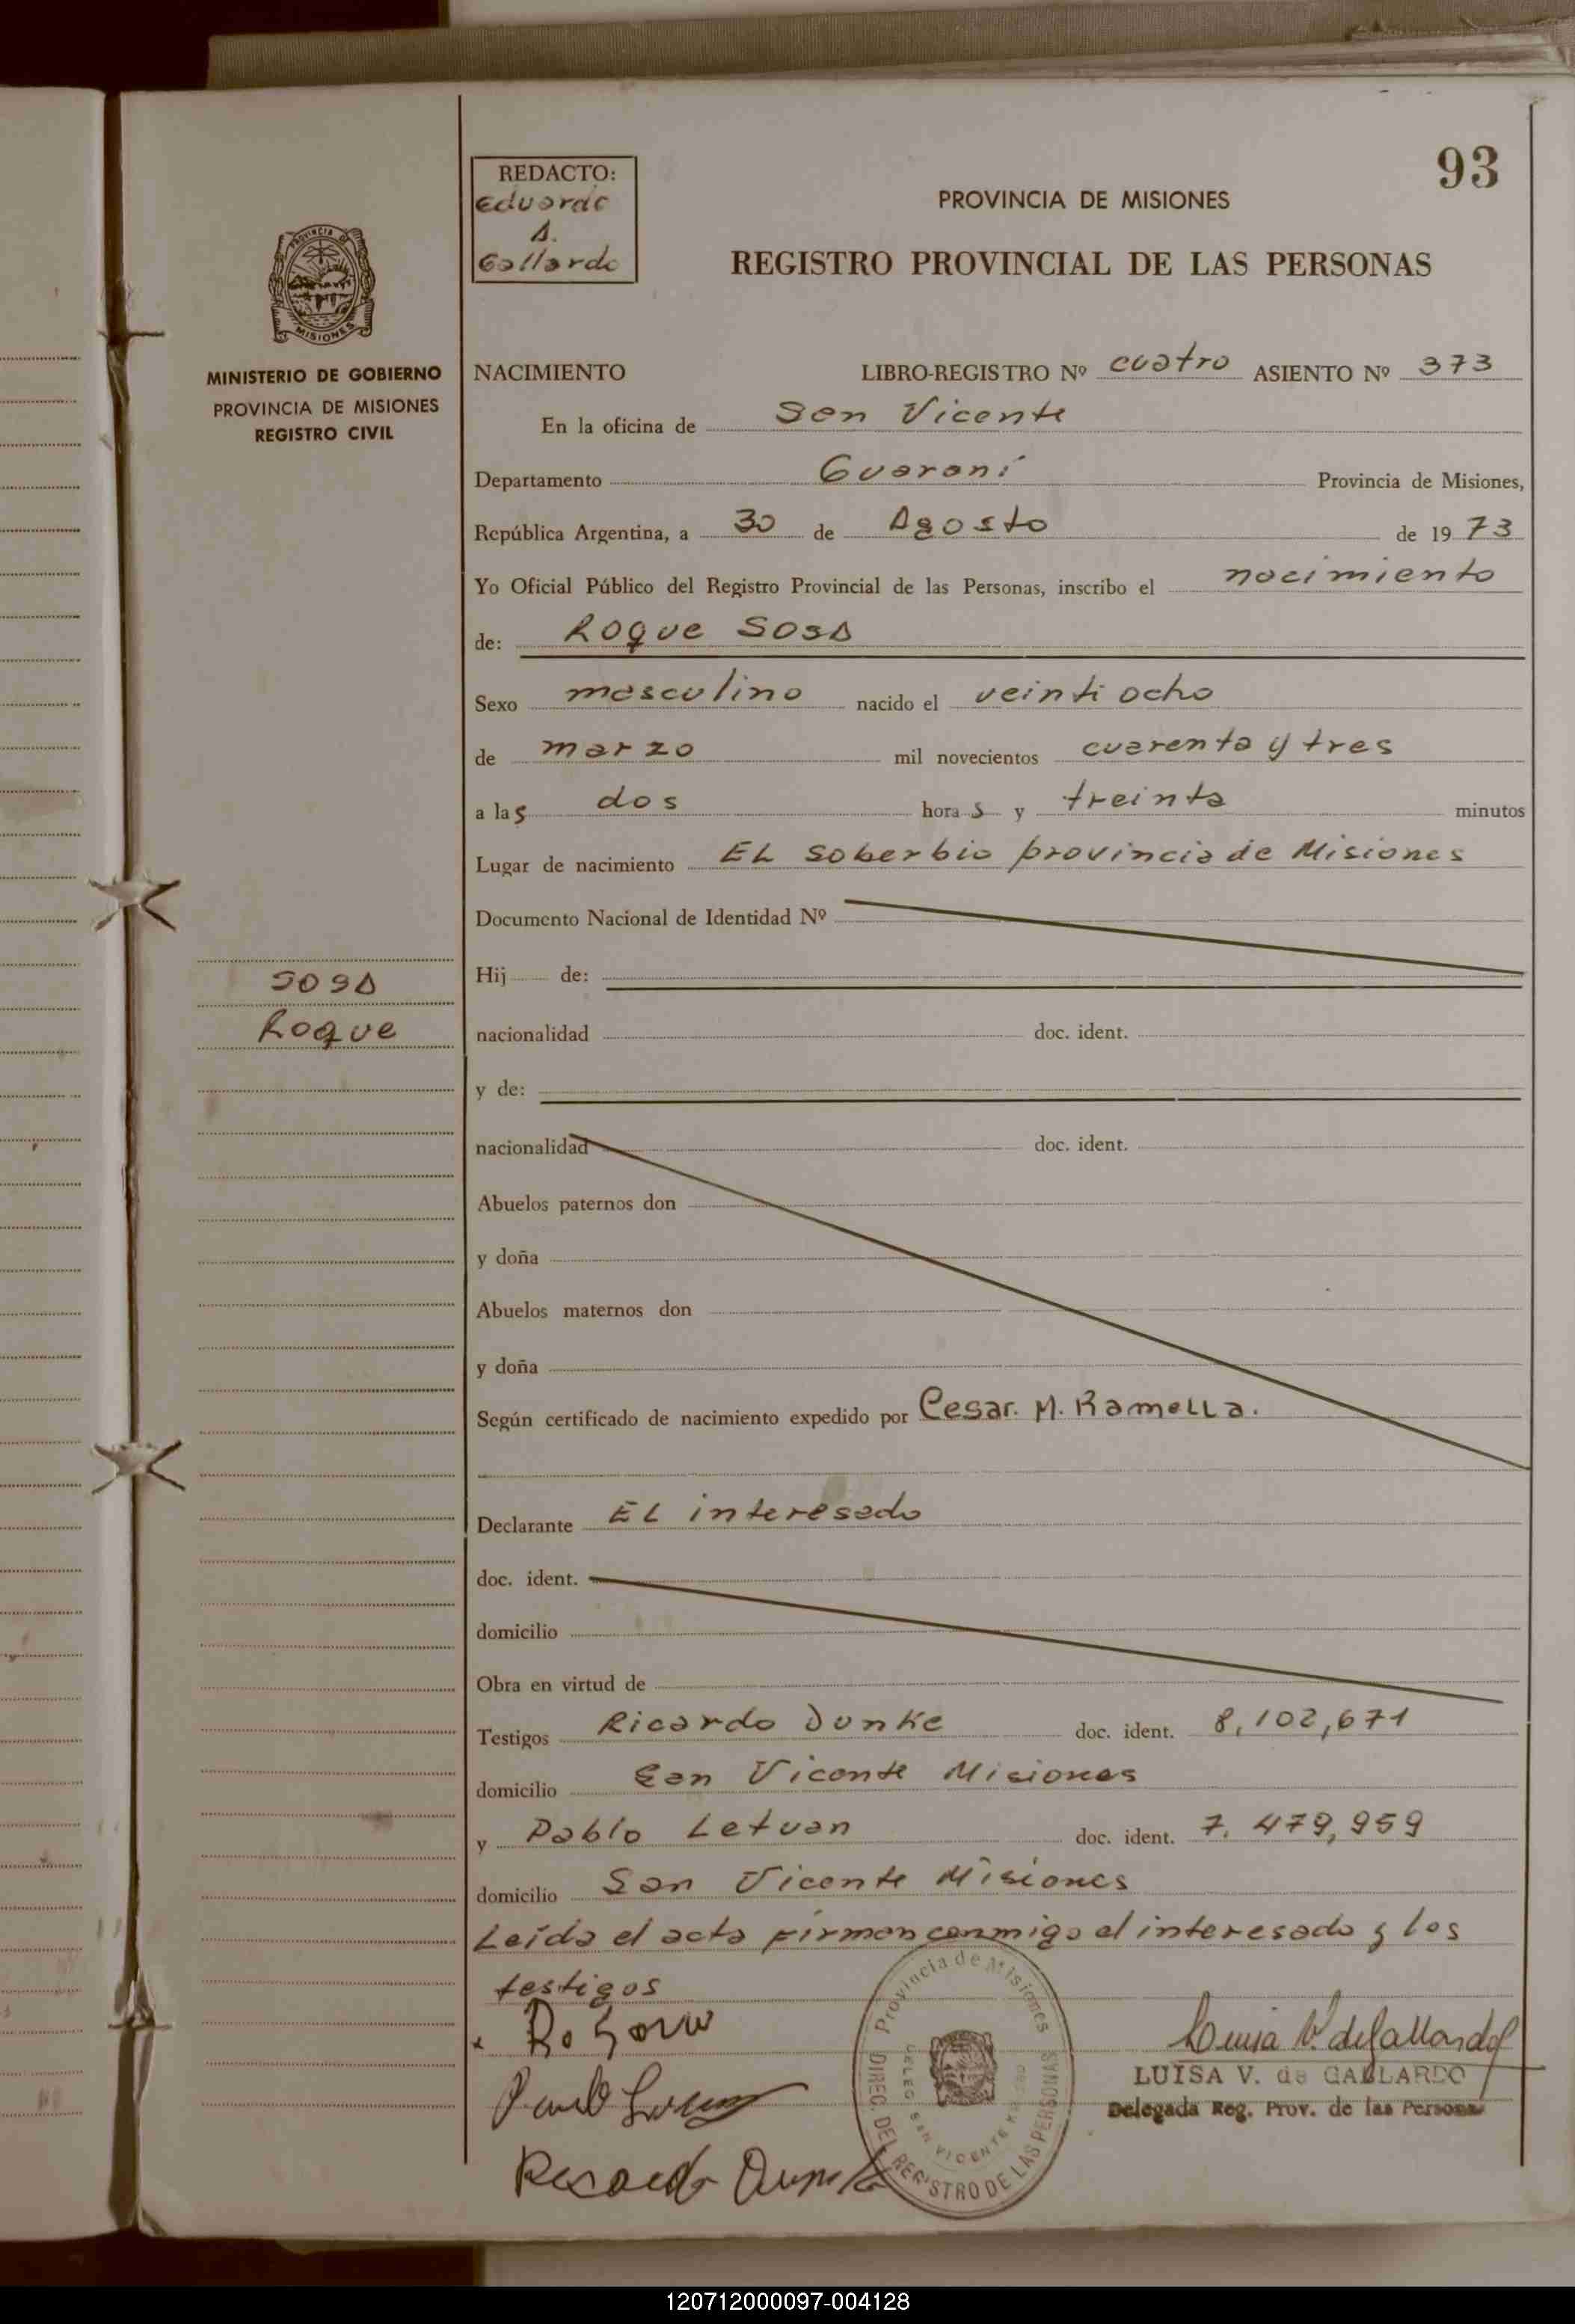 93
REDACTO:
Eduardo
A.
Gallardo
PROVINCIA DE MISIONES
REGISTRO PROVINCIAL DE LAS PERSONAS
PROVINCIA DE
MISIONES
MINISTERIO DE GOBIERNO
PROVINCIA DE MISIONES
REGISTRO CIVIL
NACIMIENTO LIBRO-REGISTRO Nº cuatro ASIENTO Nº 373
En la oficina de San Vicente
Departamento Guaraní Provincia de Misiones,
República Argentina, a 30 de Agosto de 1973
Yo Oficial Público del Registro Provincial de las Personas, inscribo el nacimiento
de: Roque SOSA
Sexo masculino nacido el veinti ocho
de marzo mil novecientos cuarenta y tres
a las dos horas y treinta minutos
Lugar de nacimiento EL Soberbio provincia de Misiones
Documento Nacional de Identidad Nº
Hij de:
SOSA
Roque
nacionalidad doc. ident.
y de:
nacionalidad doc. ident.
Abuelos paternos don
y doña
Abuelos maternos don
y doña
Según certificado de nacimiento expedido por Cesar. M. Ramella.
Declarante EL interesado
doc. ident.
domicilio
Obra en virtud de
Testigos Ricardo Dunke doc. ident. 8,102,671
domicilio San Vicente Misiones
y Pablo Letuan doc. ident. 7.479,959
domicilio San Vicente Misiones
Leída el acta firman conmigo el interesado y los
testigos
Provincia de Misiones
DIREC. DEL REGISTRO DE LAS PERSONAS
DELEG. SAN VICENTE
Luisa V. de Gallardo
LUISA V. de GALLARDO
Delegada Reg. Prov. de las Personas
120712000097-004128